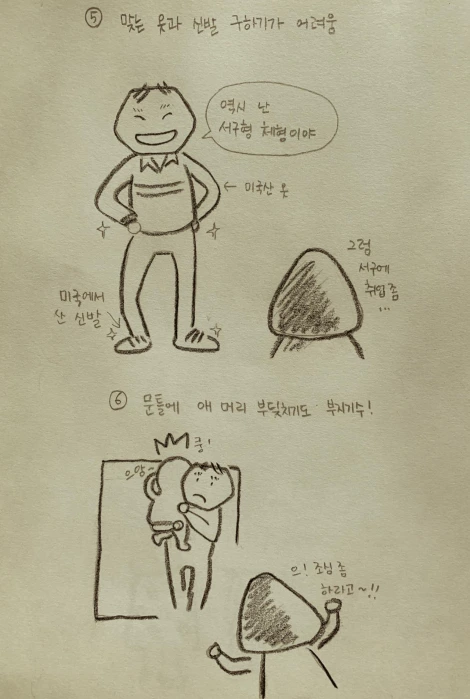 ⑤ 맞는 옷과 신발 구하기가 어려움
역시 난
서구형 체형이야
← 미국산 옷
그럼
서구에
취업 좀
...
미국에서
산 신발
⑥ 문틀에 애 머리 부딪치기도 부지기수!
쿵!
으앙~
으! 조심 좀
하라고~!!